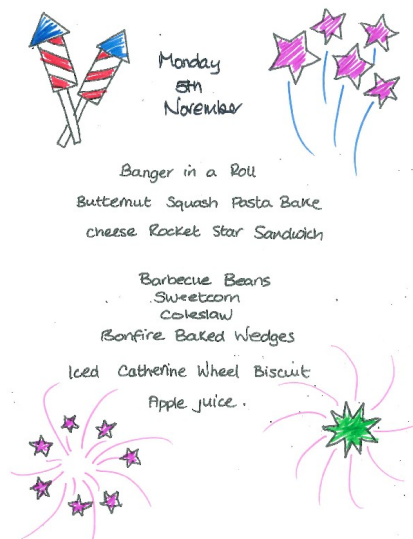 Monday
5th
November
Banger in a Roll
Butternut Squash Pasta Bake
cheese Rocket Star Sandwich
Barbecue Beans
Sweetcorn
Coleslaw
Bonfire Baked Wedges
Iced Catherine Wheel Biscuit
Apple juice.